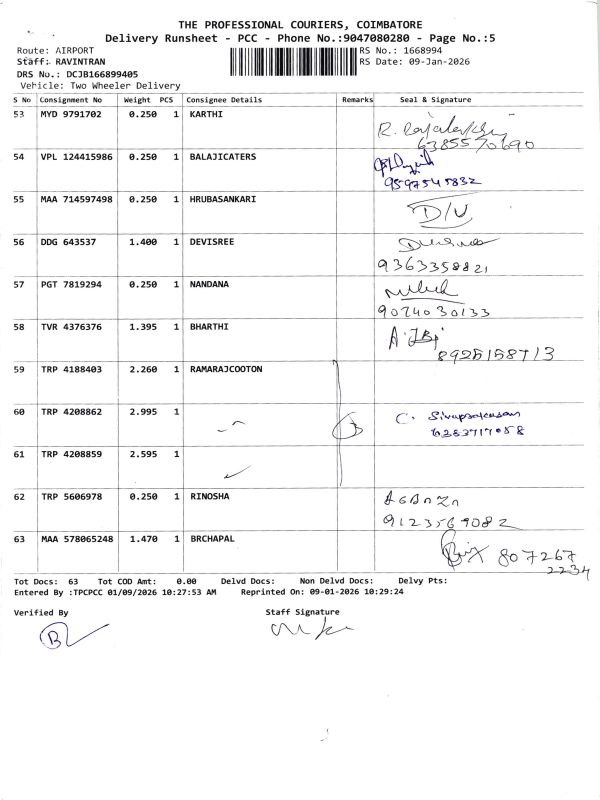 THE PROFESSIONAL COURIERS, COIMBATORE
Delivery Runsheet - PCC - Phone No.:9047080280 - Page No.:5
Route: AIRPORT
Staff: RAVINTRAN
DRS No.: DCJB166899405
Vehicle: Two Wheeler Delivery
RS No.: 1668994
RS Date: 09-Jan-2026
S No Consignment No Weight PCS Consignee Details Remarks Seal & Signature
53 MYD 9791702 0.250 1 KARTHI
6385570690
54 VPL 124415986 0.250 1 BALAJICATERS
9597545832
55 MAA 714597498 0.250 1 HRUBASANKARI D/U
56 DDG 643537 1.400 1 DEVISREE
9363358821
57 PGT 7819294 0.250 1 NANDANA
9074030133
58 TVR 4376376 1.395 1 BHARTHI
59 TRP 4188403 2.260 1 RAMARAJCOOTON
60 TRP 4208862 2.995 1 3 C.
61 TRP 4208859 2.595 1
62 TRP 5606978 0.250 1 RINOSHA
9123569082
63 MAA 578065248 1.470 1 BRCHAPAL 807267
2234
Tot Docs: 63 Tot COD Amt: 0.00 Delvd Docs: Non Delvd Docs: Delvy Pts:
Entered By :TPCPCC 01/09/2026 10:27:53 AM Reprinted On: 09-01-2026 10:29:24
Verified By Staff Signature
B